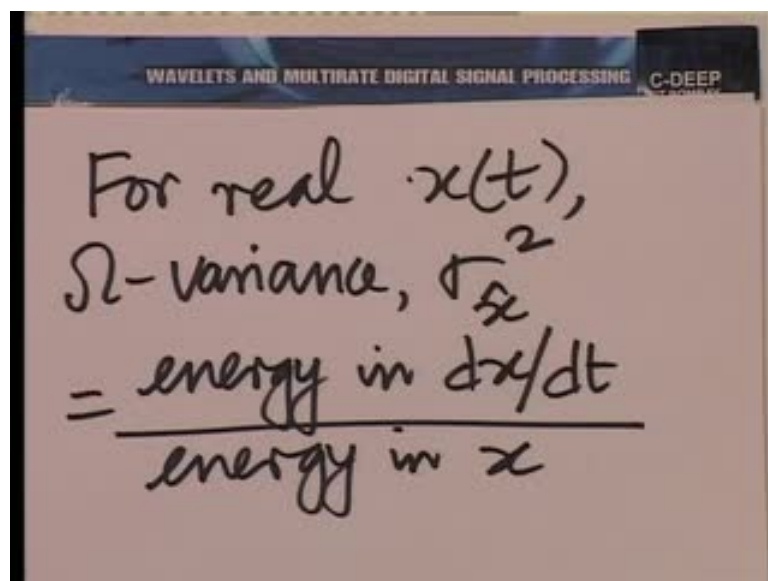 WAVELETS AND MULTIRATE DIGITAL SIGNAL PROCESSING C-DEEP
For real x(t),
Ω-variance, σ_x̂^2
= energy in dx/dt
energy in x